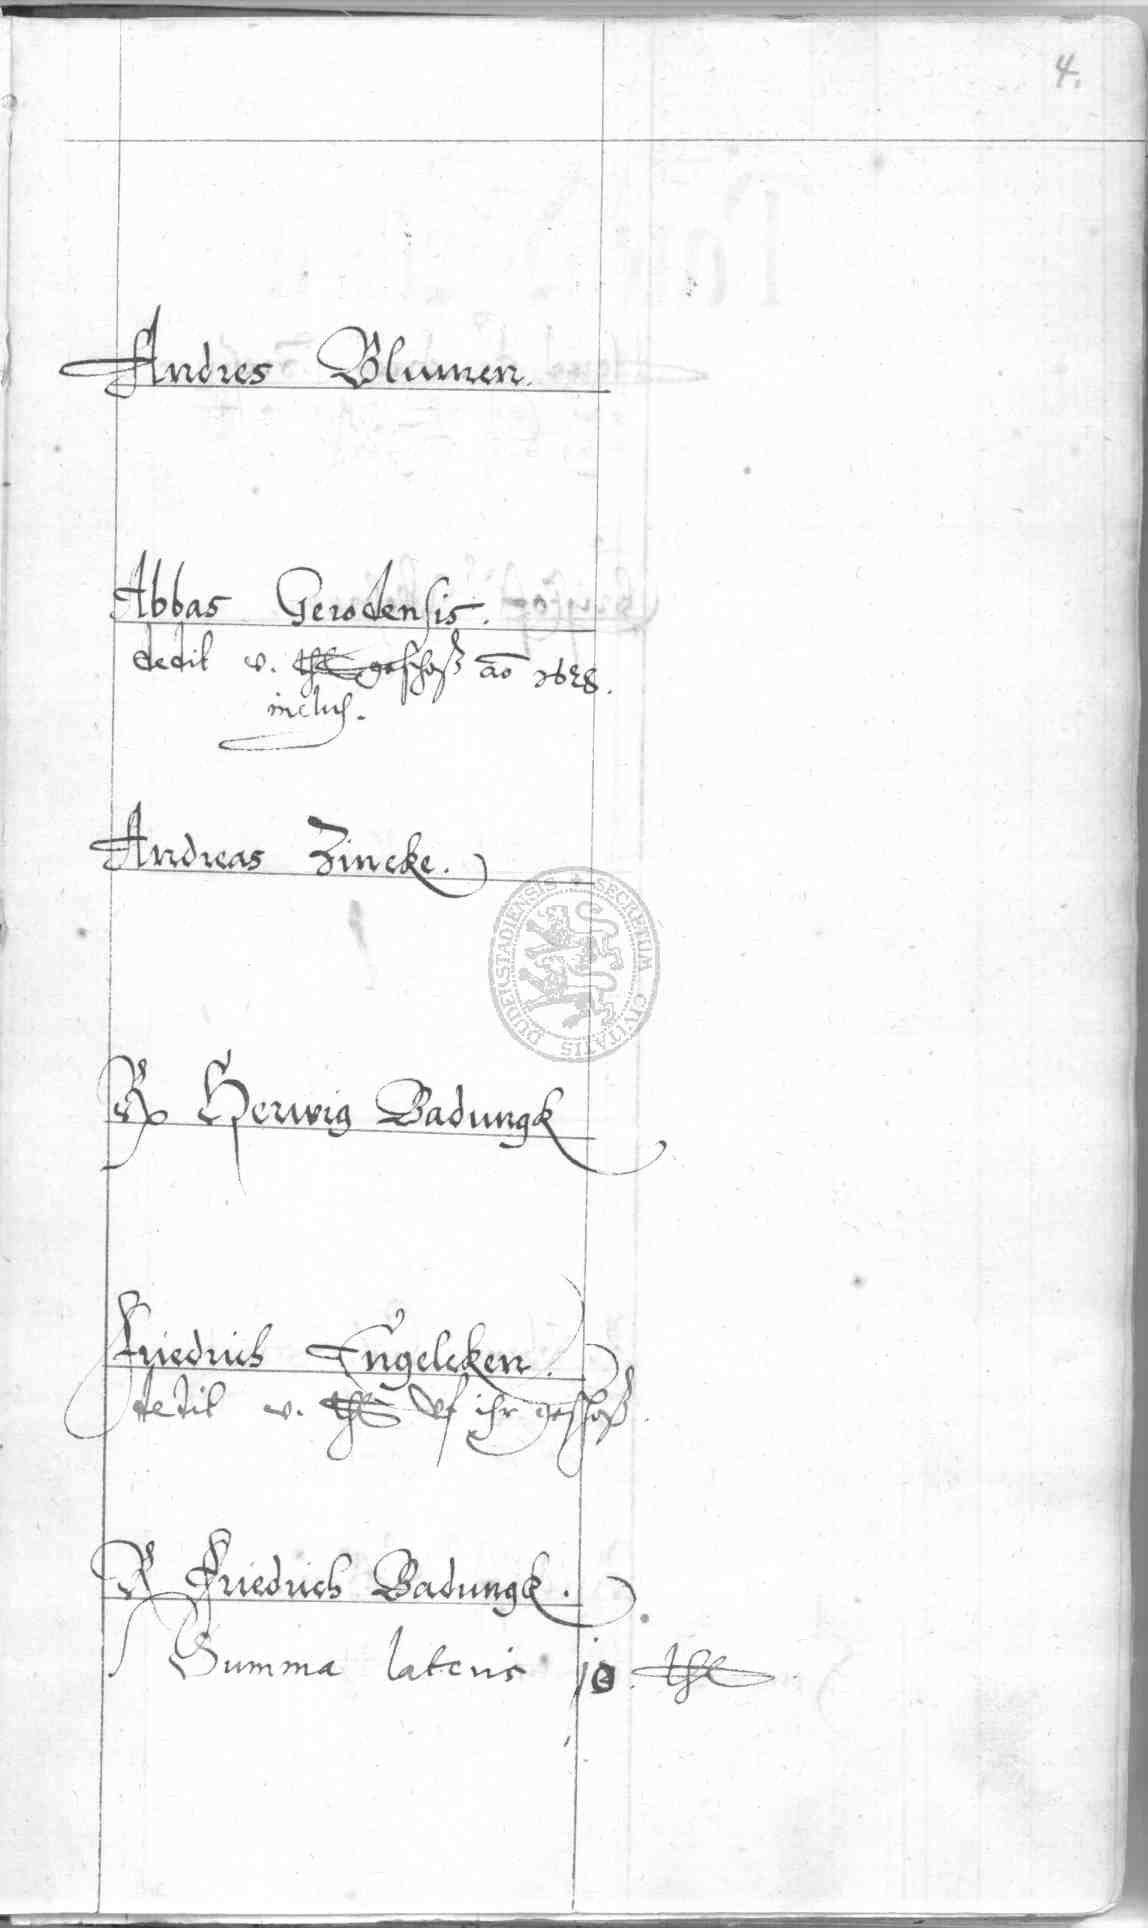 4.
Andres Blumen.
Abbas Gerodensis.
dedit v. thl geschoß ao 1638.
inclus.
Andreas Zincke.
DUDERSTADIENSIS SECRETUM CIVITATIS
Herwig Badungk
Friedrich Engelcken.
dedit v. thl uf ihr geschoß
Friedrich Badungk.
Summa lateris 10. thl